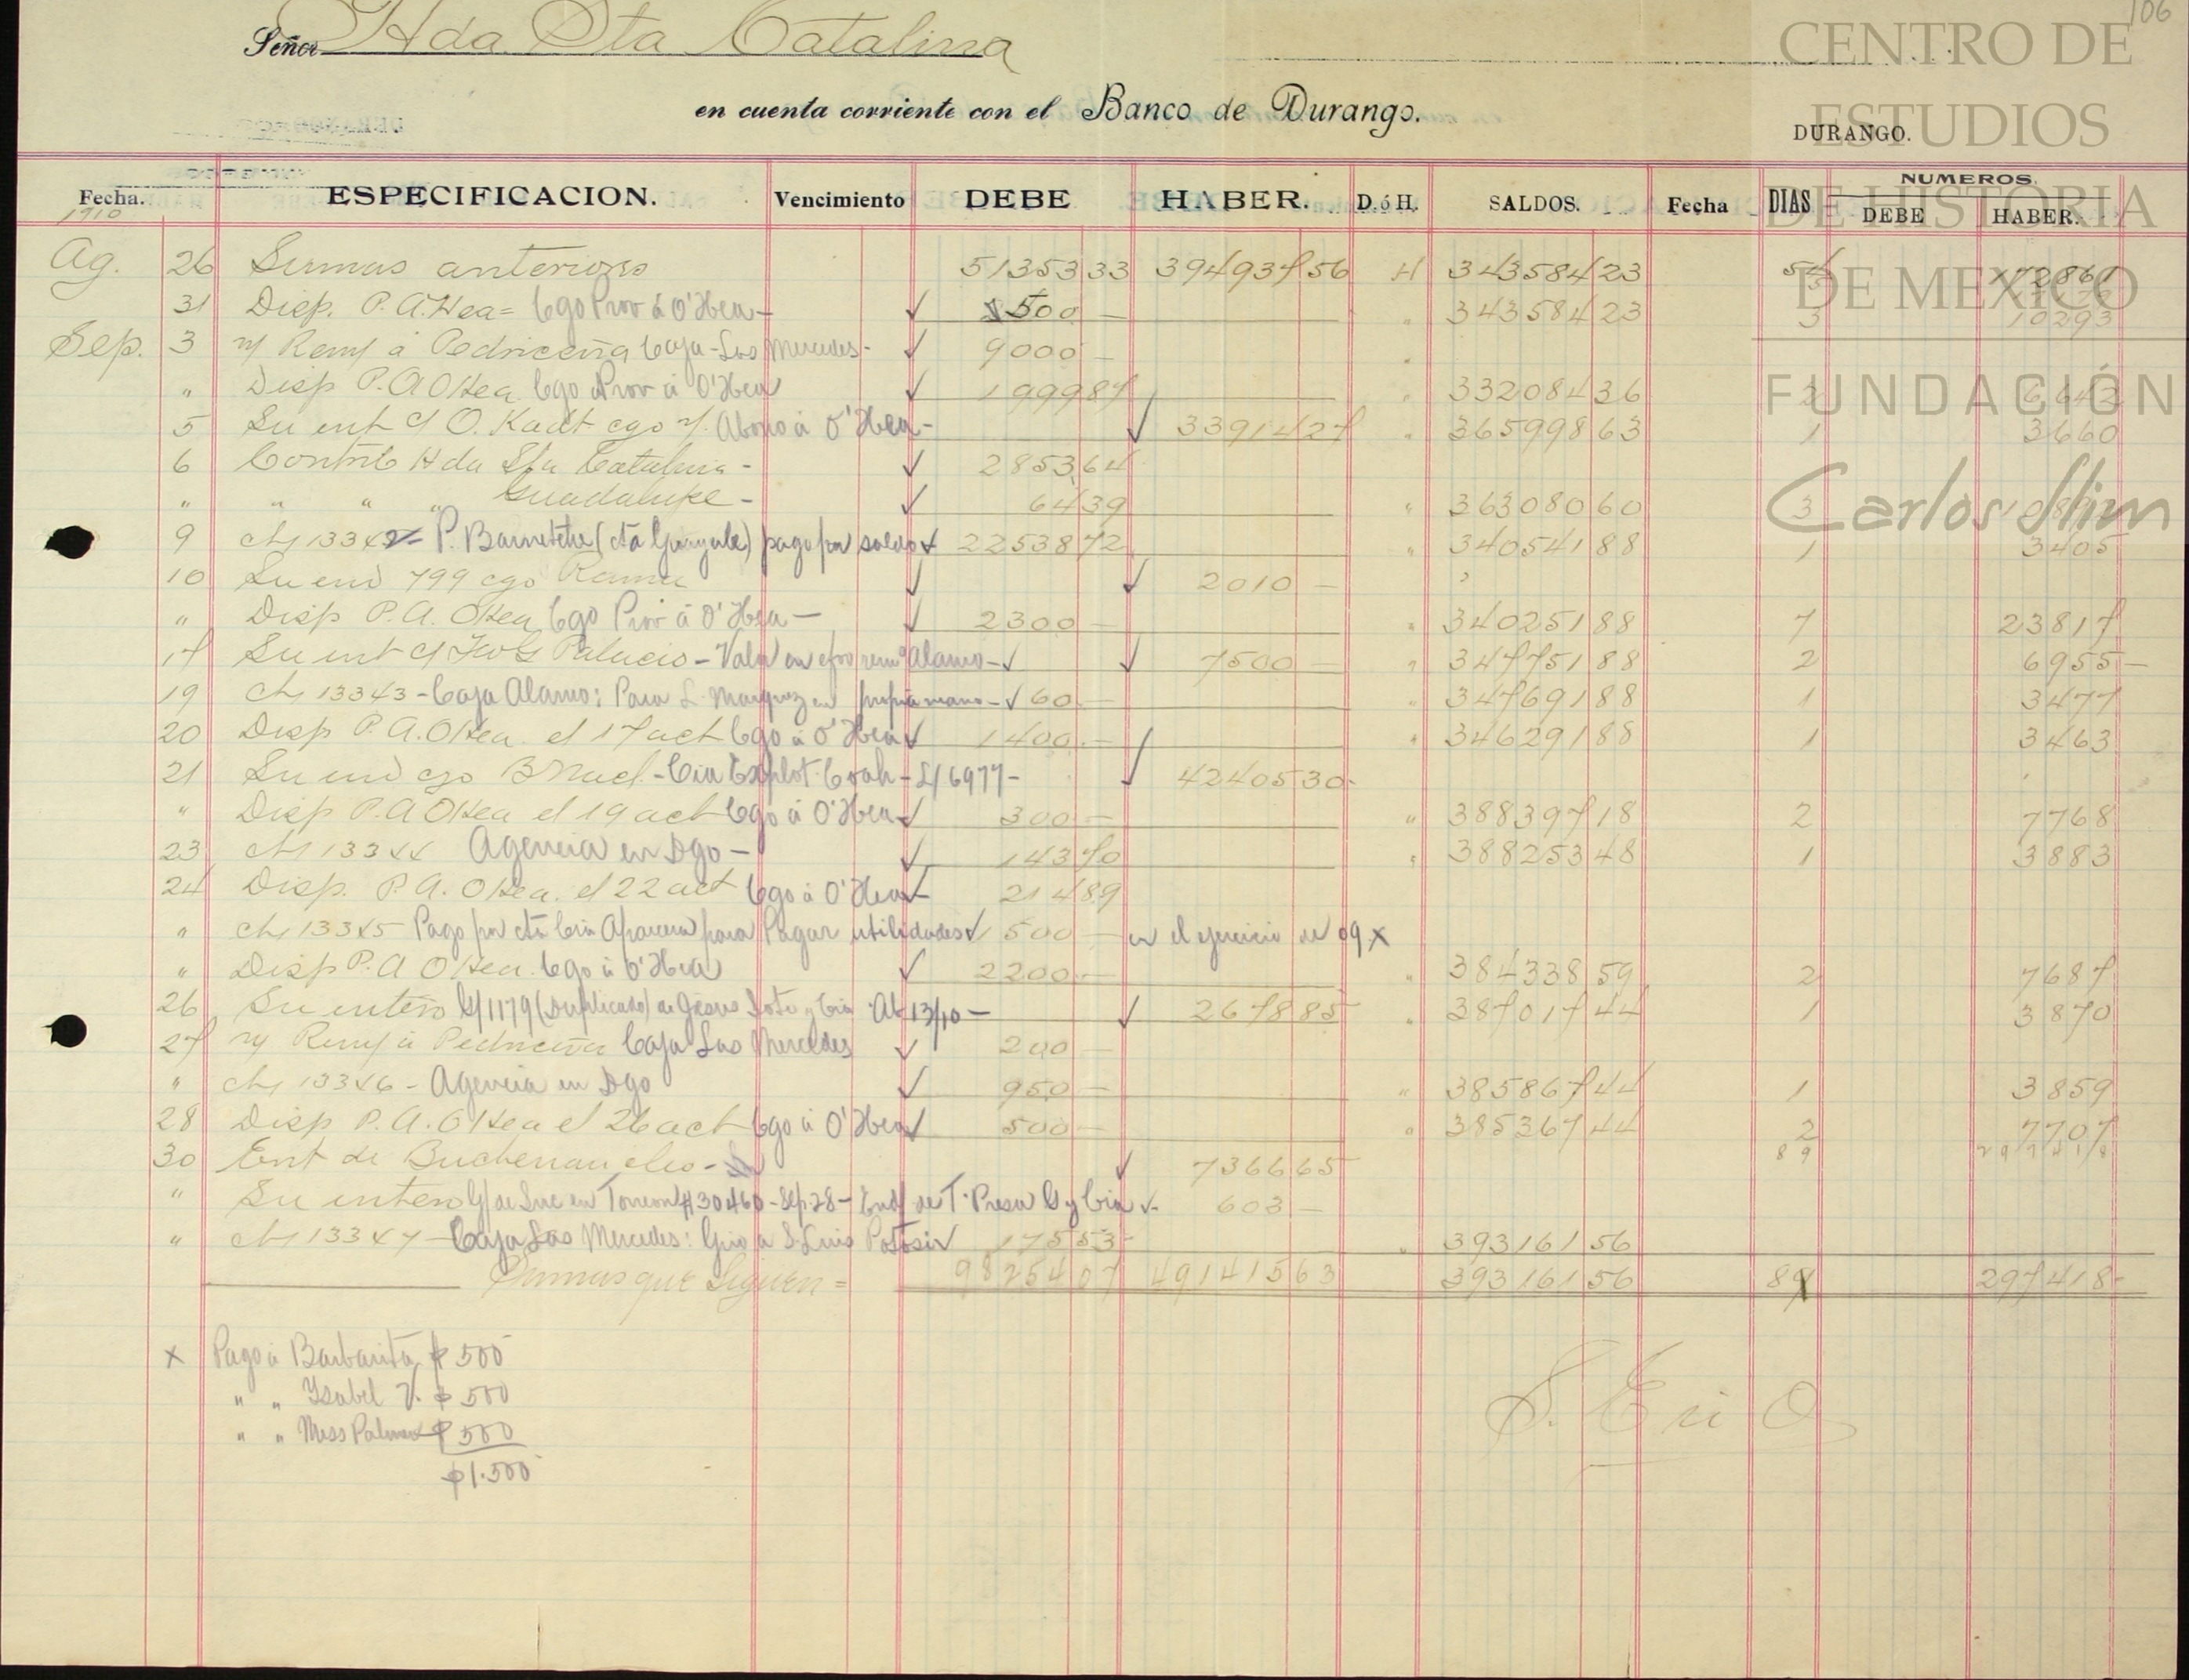 106
Señor Hda Sta Catalina
en cuenta corriente con el Banco de Durango.
DURANGO.
CENTRO DE
ESTUDIOS
DE HISTORIA
DE MEXICO
FUNDACIÓN
Carlos Slim
Fecha. ESPECIFICACION. Vencimiento DEBE HABER. D. ó H. SALDOS. Fecha DIAS NUMEROS. DEBE HABER.
1910
Ag. 26 Sumas anteriores 51353 33 394937 56 H 343584 23 54 172861
31 Disp. P. A. Hea = Cgo Prov á O'Hea - 500 — " 343584 23 3 10293
Sep. 3 n/ Rem/ a Pedriceña Caja - Las Mercedes - 9000 —
" Disp P. A O Hea Cgo Prov á O'Hea 1999 87 " 332084 36 2 6642
5 Su ent c/ O. Kadt cgo n/. Abono á O'Hea - 33914 27 " 365998 63 1 3660
6 Contrib Hda Sta Catalina - 2853 64
" " " " Guadalupe - 64 39 " 363080 60 3
9 ch/ 13342 - P. Barnetche (cta Guayule) pago por saldo 22538 72 " 340541 88 1 3405
10 Su env 799 cgo 2010 —
" Disp P. A. OHea Cgo Prov á O'Hea — 2300 — " 340251 88 7 23817
17 Su ent c/ Palacio - Valor en efvo rem° Alamo - 7500 — " 347751 88 2 6955 —
19 ch/ 13343 - Caja Alamo: Para L. Marquez en propia mano - 60 — " 347691 88 1 3477
20 Disp P. A. OHea el 17 act Cgo á O'Hea 1400 — " 346291 88 1 3463
21 Su env cgo B Nacl - Cia Explot. Coah - L/ 6977 - 42405 30
" Disp P. A OHea el 19 act Cgo á O'Hea 300 — " 388397 18 2 7768
23 ch/ 13344 Agencia en Dgo — 143 70 " 388253 48 1 3883
24 Disp. P. A. OHea el 22 act Cgo á O'Hea 214 89
" ch/ 13345 Pago por cta Cria Aparcera para Pagar utilidades 1500 — en el ejercicio de 09 x
" Disp P. A OHea Cgo á O'Hea 2200 — " 384338 59 2 7687
26 Su entero G/1179 (Duplicado) de Soto y Cia Ab 13/10 — 2678 85 " 387017 44 1 3870
27 n/ Rem/ a Pedriceña Caja Las Mercedes 200 —
" ch/ 13346 - Agencia en Dgo 950 — " 385867 44 1 3859
28 Disp P. A. OHea el 26 act Cgo á O'Hea 500 — " 385367 44 2 7707
89 297418
30 Ent de Buchenau 7366 65
" Su entero G/ de Suc en Torreon #30460 - Sep. 28 - End/ de T. Presa G y Cia 603 —
" ch/ 13347 - Caja Las Mercedes: Giro a S. Luis Potosi 175 53 " 393161 56
Sumas que Siguen = 98254 07 491415 63 393161 56 89 297418
x Pago á Barbarita $ 500
" " Ysabel V. $ 500
" " Miss Palmer $ 500
$ 1.500
S. E ú O